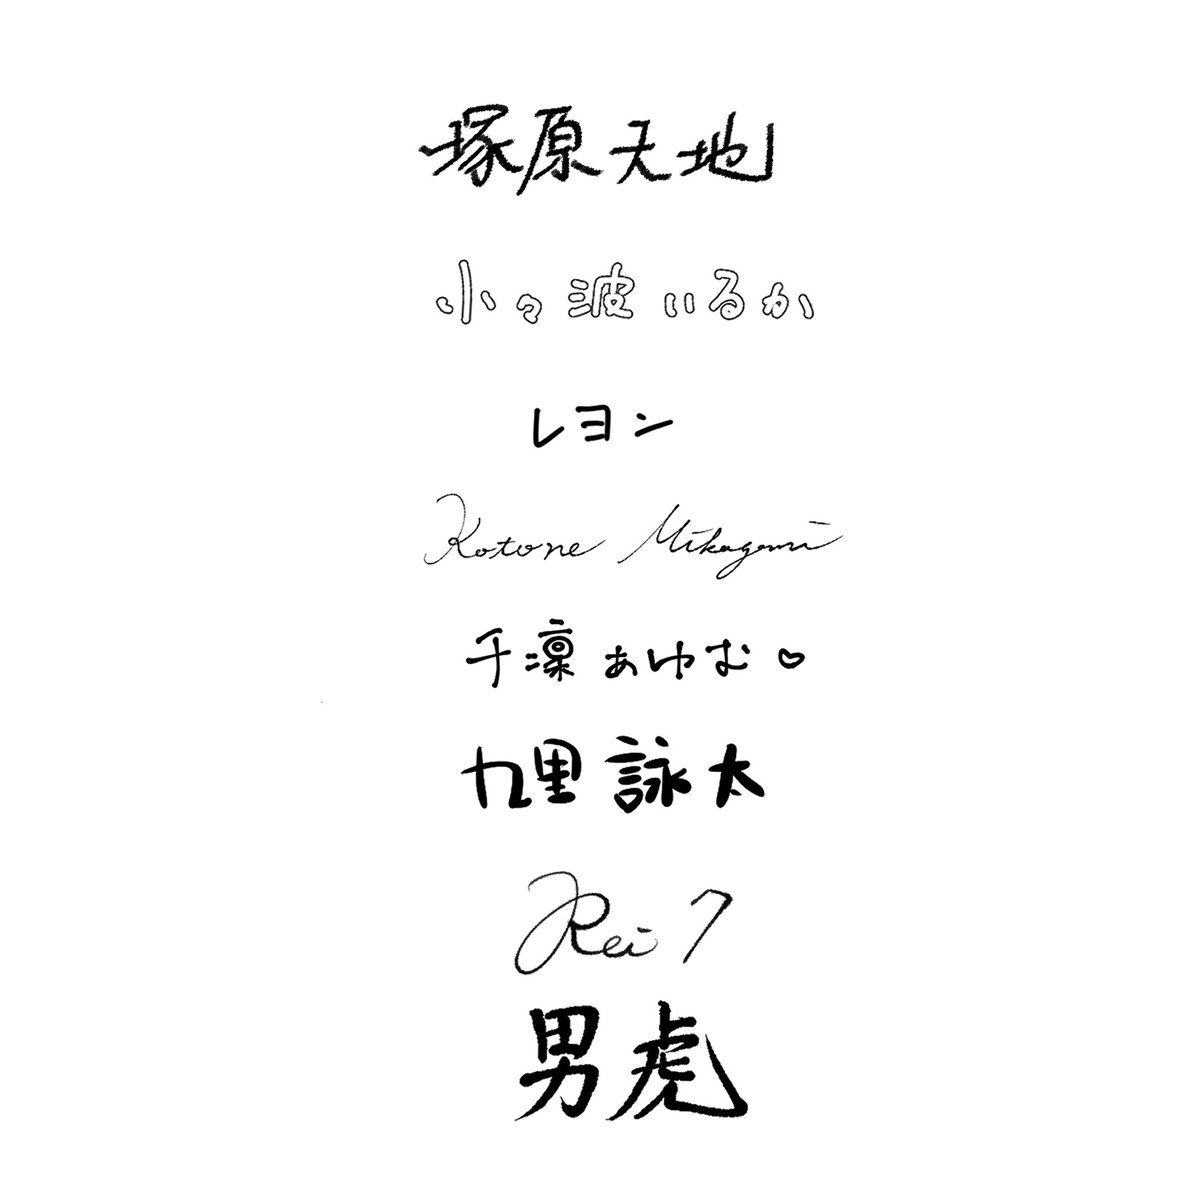 塚原天地
小々波いるか
レヨン
Kotone Mikagami
千凛あゆむ♡
九里詠太
Rei 7
男虎